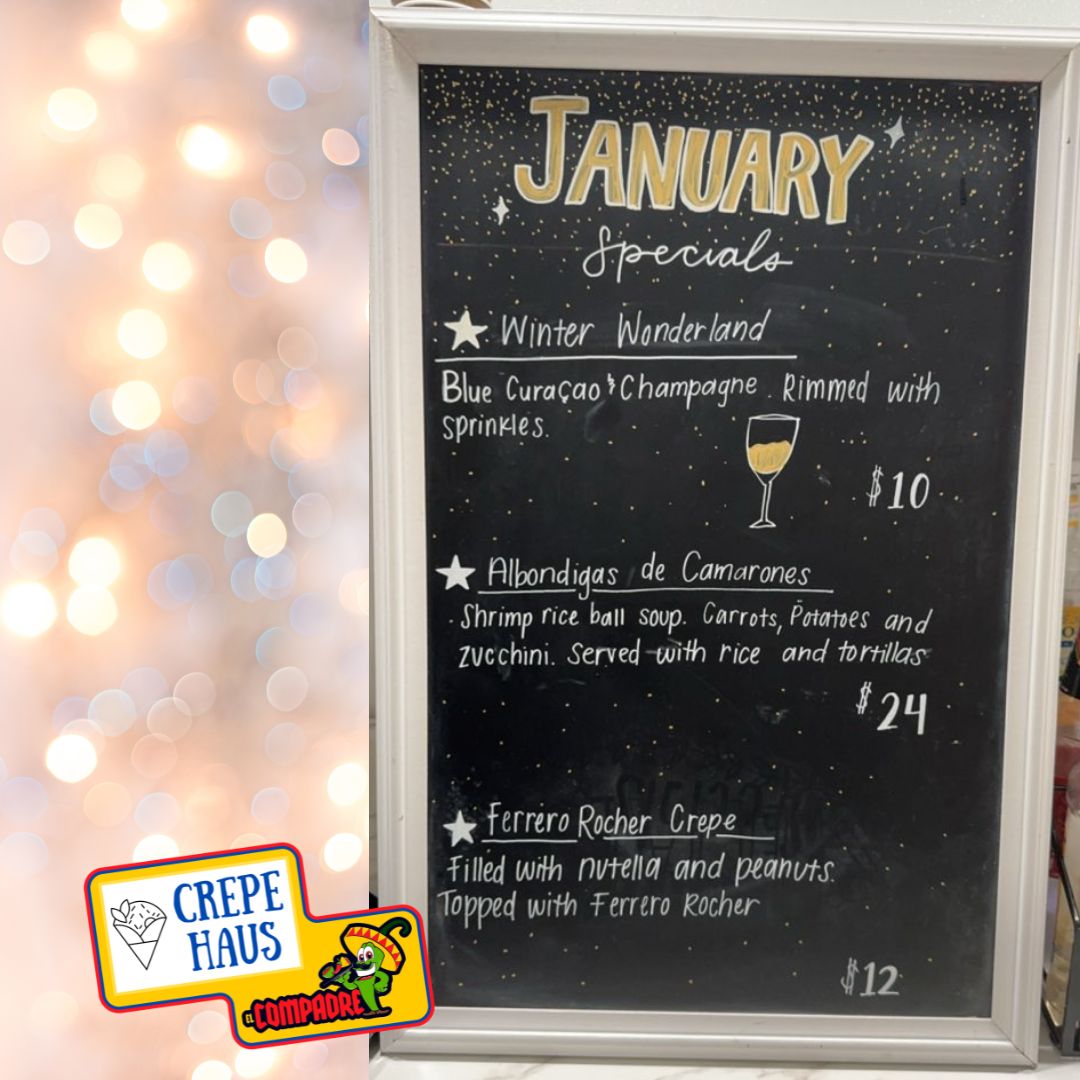 JANUARY
Specials
Winter Wonderland
Blue Curaçao & Champagne. Rimmed with
sprinkles.
$10
Albondigas de Camarones
· Shrimp rice ball soup. Carrots, Potatoes and
zucchini. Served with rice and tortillas
$24
Ferrero Rocher Crepe
Filled with nutella and peanuts.
Topped with Ferrero Rocher
$12
CREPE
HAUS
EL COMPADRE